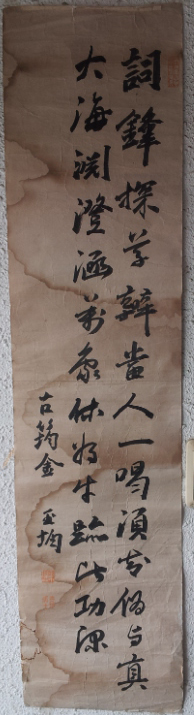 詞鋒探草辨當人一喝須知偽与真
大海渕澄涵萬象休将牛跡比功深
古筠金玉均